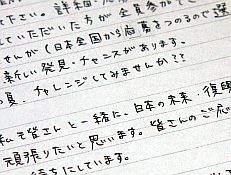 下さい。詳細
していただいた方が全員参加で
せんが(日本全国から応募をつのるので選
新しい発見・チャンスがあります。
夏、チャレンジしてみませんか??
私も皆さんと一緒に、日本の未来、復興
頑張りたいと思います。皆さんのご応
待ちにしています。